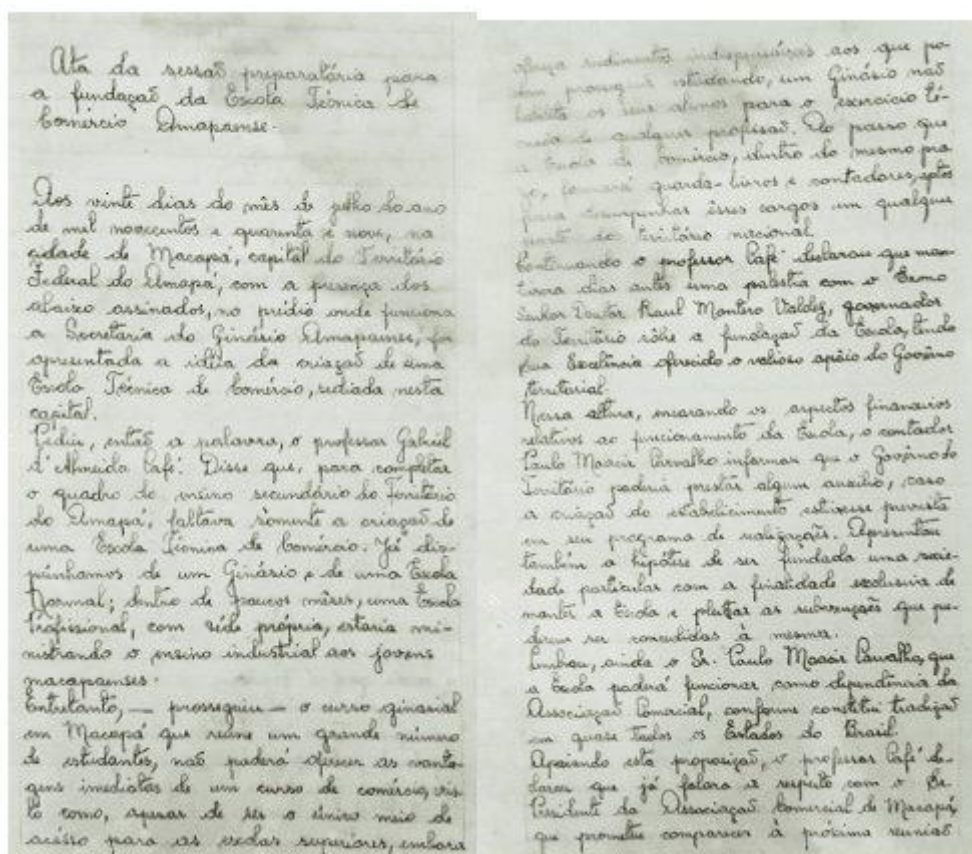 Ata da sessão preparatória para
a fundação da Escola Técnica de
Comércio Amapaense.
Aos vinte dias do mês de julho do ano
de mil novecentos e quarenta e nove, na
cidade de Macapá, capital do Território
Federal do Amapá, com a presença dos
abaixo assinados, no prédio onde funciona
a Secretaria do Ginásio Amapaense, foi
apresentada a idéia da criação de uma
Escola Técnica de Comércio, sediada nesta
capital.
Pediu, então a palavra, o professor Gabriel
d'Almeida Café. Disse que, para completar
o quadro do ensino secundário do Território
do Amapá, faltava sòmente a criação de
uma Escola Técnica de Comércio. Já dis-
púnhamos de um Ginásio e de uma Escola
Normal; dentro de poucos mêses, uma Escola
Profissional, com séde própria, estaria mi-
nistrando o ensino industrial aos jovens
macapaenses.
Entretanto, — prosseguiu — o curso ginasial
em Macapá que reune um grande número
de estudantes, não poderá oferecer as vanta-
gens imediatas de um curso de comércio, vis-
to como, apesar de ser o único meio de
acésso para as escolas superiores, embora
ofereça rudimentos indispensáveis aos que po-
dem prosseguir estudando, um Ginásio não
habilita os seus alunos para o exercício téc-
nico de qualquer profissão. Ao passo que
a Escola de Comércio, dentro do mesmo pra-
zo, formará guarda-livros e contadores, aptos
para desempenhar êsses cargos em qualquer
parte do território nacional.
Continuando o professor Café declarou que man-
tivera dias antes uma palestra com o Exmo
Senhor Doutor Raul Montero Valdez, governador
do Território sôbre a fundação da Escola, tendo
Sua Excelência oferecido o valioso apôio do Govêrno
territorial.
Nessa altura, encarando os aspectos financeiros
relativos ao funcionamento da Escola, o contador
Paulo Moacir Carvalho informou que o Govêrno do
Território poderia prestar algum auxílio, caso
a criação do estabelecimento estivesse prevista
em seu programa de realizações. Apresentou
também a hipótese de ser fundada uma socie-
dade particular com a finalidade exclusiva de
manter a Escola e pleitear as subvenções que pu-
dessem ser concedidas à mesma.
Lembrou, ainda o Sr. Paulo Moacir Carvalho, que
a Escola poderá funcionar, como dependência da
Associação Comercial, conforme constitui tradição
em quase todos os Estados do Brasil.
Apoiando esta proposição, o professor Café de-
clarou que já falara a respeito com o Sr.
Presidente da Associação Comercial de Macapá,
que prometeu comparecer à próxima reunião